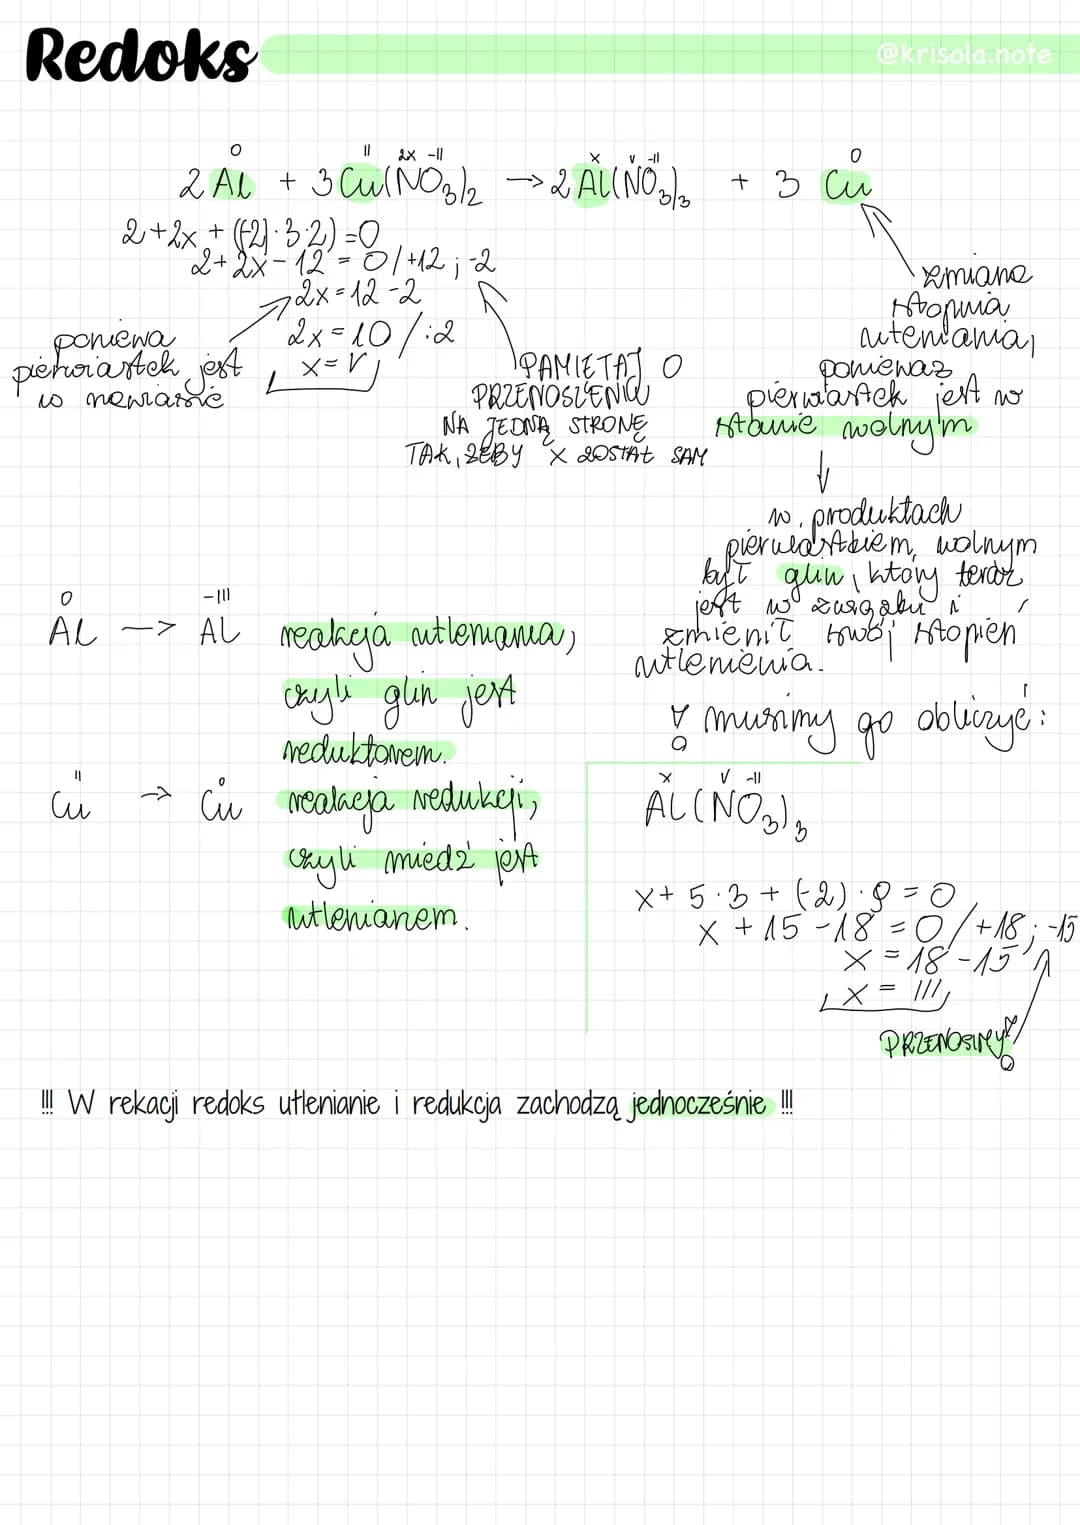 Redoks
@krisola.note
0 II 2x -II x V -II 0
2 Al + 3 Cu(NO3)2 —> 2 Al(NO3)3 + 3 Cu
2+2x + ((-2)·3·2) = 0
2+2x-12 = 0 /+12 ; -2
2x = 12 -2
2x = 10 / :2
x = V
poniewa
pierwiastek jest
w nawiasie
PAMIĘTAJ O
PRZENOSZENIU
NA JEDNĄ STRONĘ
TAK, ŻEBY X ZOSTAŁ SAM
zmiana
stopnia
utleniania,
ponieważ
pierwiastek jest w
stanie wolnym
w produktach
pierwiastkiem wolnym
był glin, który teraz
jest w związku i
zmienił swój stopień
utlenienia.
! musimy go obliczyć:
0 -III
Al —> Al reakcja utleniania,
czyli glin jest
reduktorem.
II 0
Cu -> Cu reakcja redukcji,
czyli miedź jest
utleniaczem.
x V -II
Al(NO3)3
x + 5·3 + (-2)·9 = 0
x + 15 -18 = 0 / +18 ; -15
x = 18 -15
x = III
PRZENOSIMY!
!!! W rekacji redoks utlenianie i redukcja zachodzą jednocześnie !!!